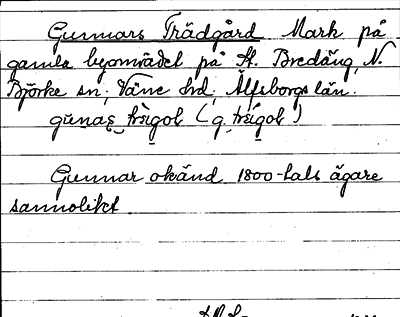 Gunnars Trädgård Mark på
gamla byområdet på St. Bredäng, N.
Björke sn, Väne hd, Älfsborgs län.
gunas_trègol (g_trégol)
Gunnar okänd 1800-tals ägare
sannolikt